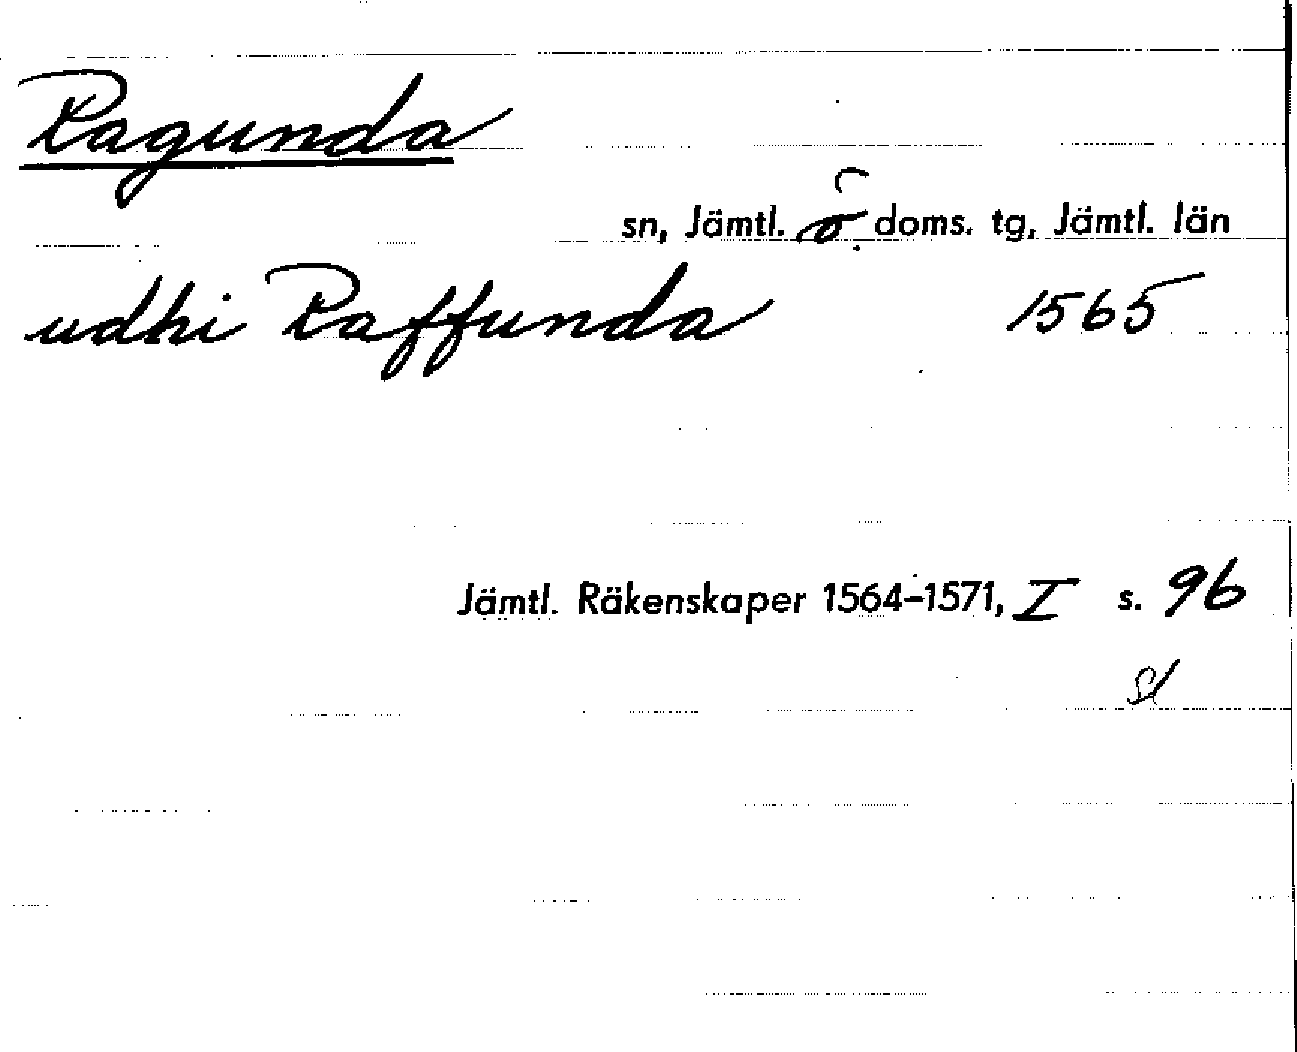 Ragunda
sn, Jämtl. ö doms. tg, Jämtl. län
udhi Raffunda 1565
Jämtl. Räkenskaper 1564-1571, I s. 96